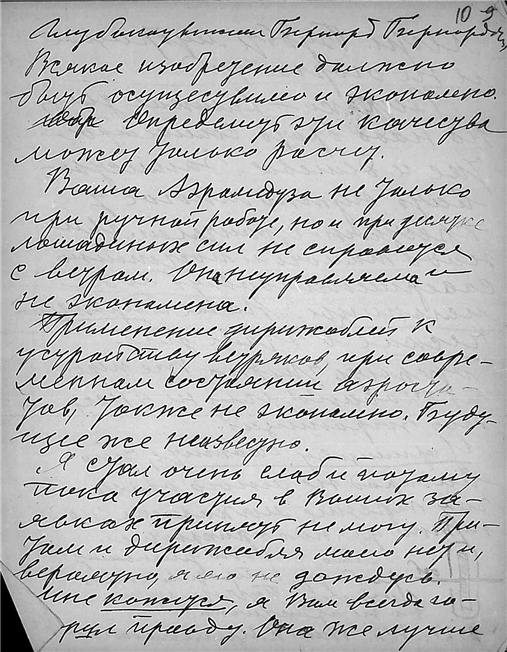 10-9
Глубокоуважаемый Бернард Бернардович,
Всякое изобретение должно
быть осуществимо и экономно.
Определить эти качества
может только расчет.
Ваша Аэромедуза не только
при ручной работе, но и при десятке
лошадиных сил не справится
с ветром. Она неуправляема и
не экономна.
Применение дирижаблей к
устройству ветряков, при совре-
менном состоянии аэроста-
тов, также не экономно. Буду-
щее же неизвестно.
Я стал очень слаб и потому
пока участия в Ваших за-
явках принять не могу. При-
том и дирижабля моего нет и,
вероятно, я его не дождусь.
Мне кажется, я Вам всегда го-
рил правду. Она же лучше